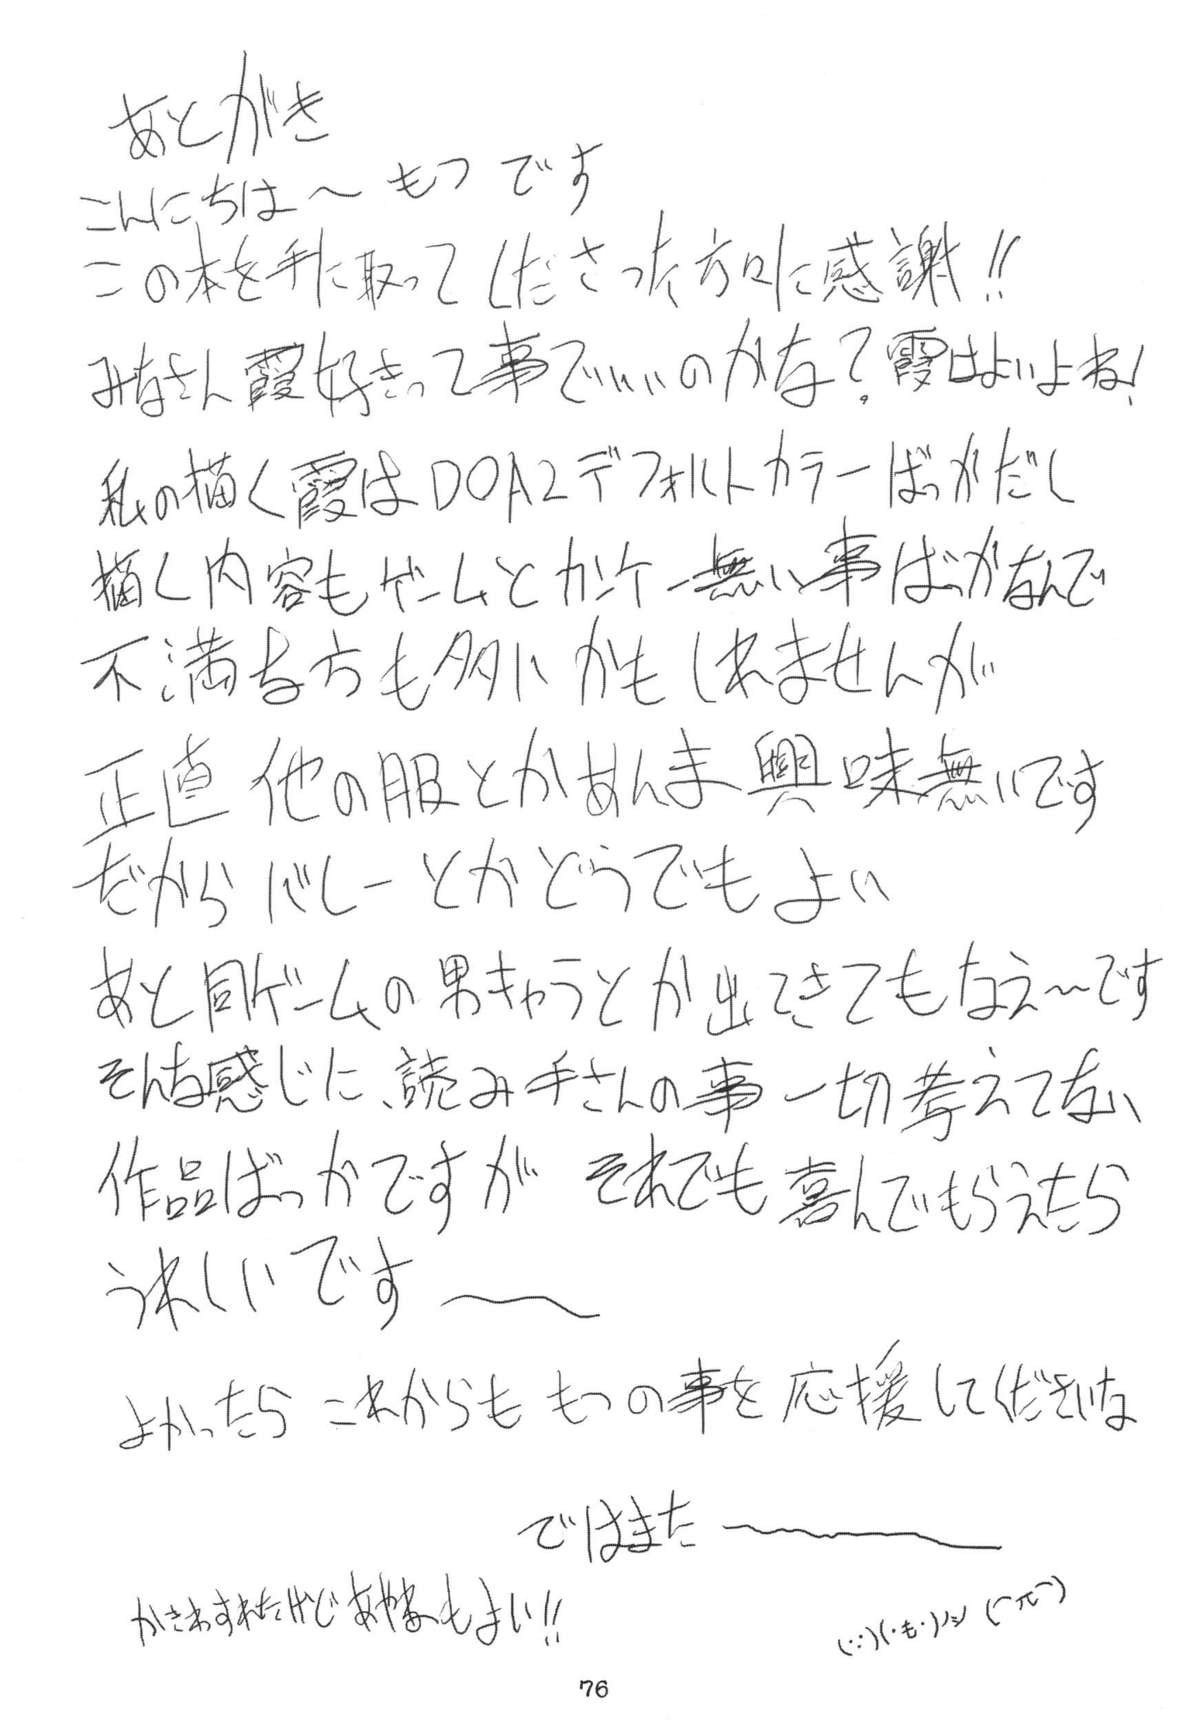 あとがき
こんにちは〜 もつ です
この本を手に取って くださった方々に感謝!!
みなさん霞好きって事でいいのかな?霞はよいよね!
私の描く霞はDOA2デフォルトカラーばっかだし
描く内容もゲームとカンケー無い事ばっかなんで
不満な方も多いかもしれませんが
正直 他の服とかあんま興味無いです
だから バレーとかどうでもよい
あと同ゲームの男キャラとか出てきてもなえ〜です
そんな感じに、読み手さんの事一切考えてない
作品ばっかですが それでも喜んでもらえたら
うれしいです〜
よかったら これからも もつの事を応援してくださいな
ではまた〜
かきわすれたけど あやねもよい!!
76